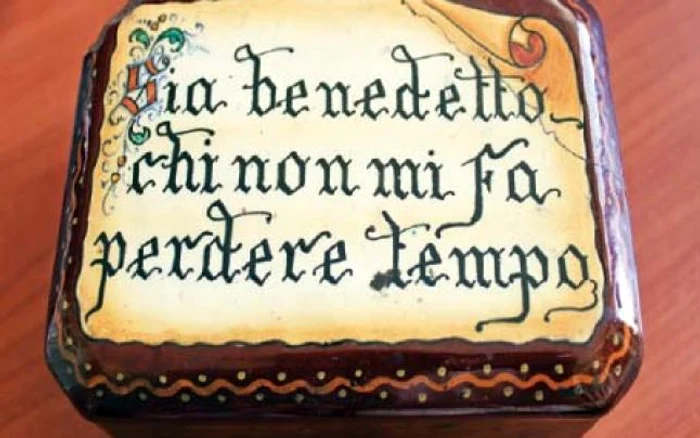 Sia benedetto
chi non mi fa
perdere tempo